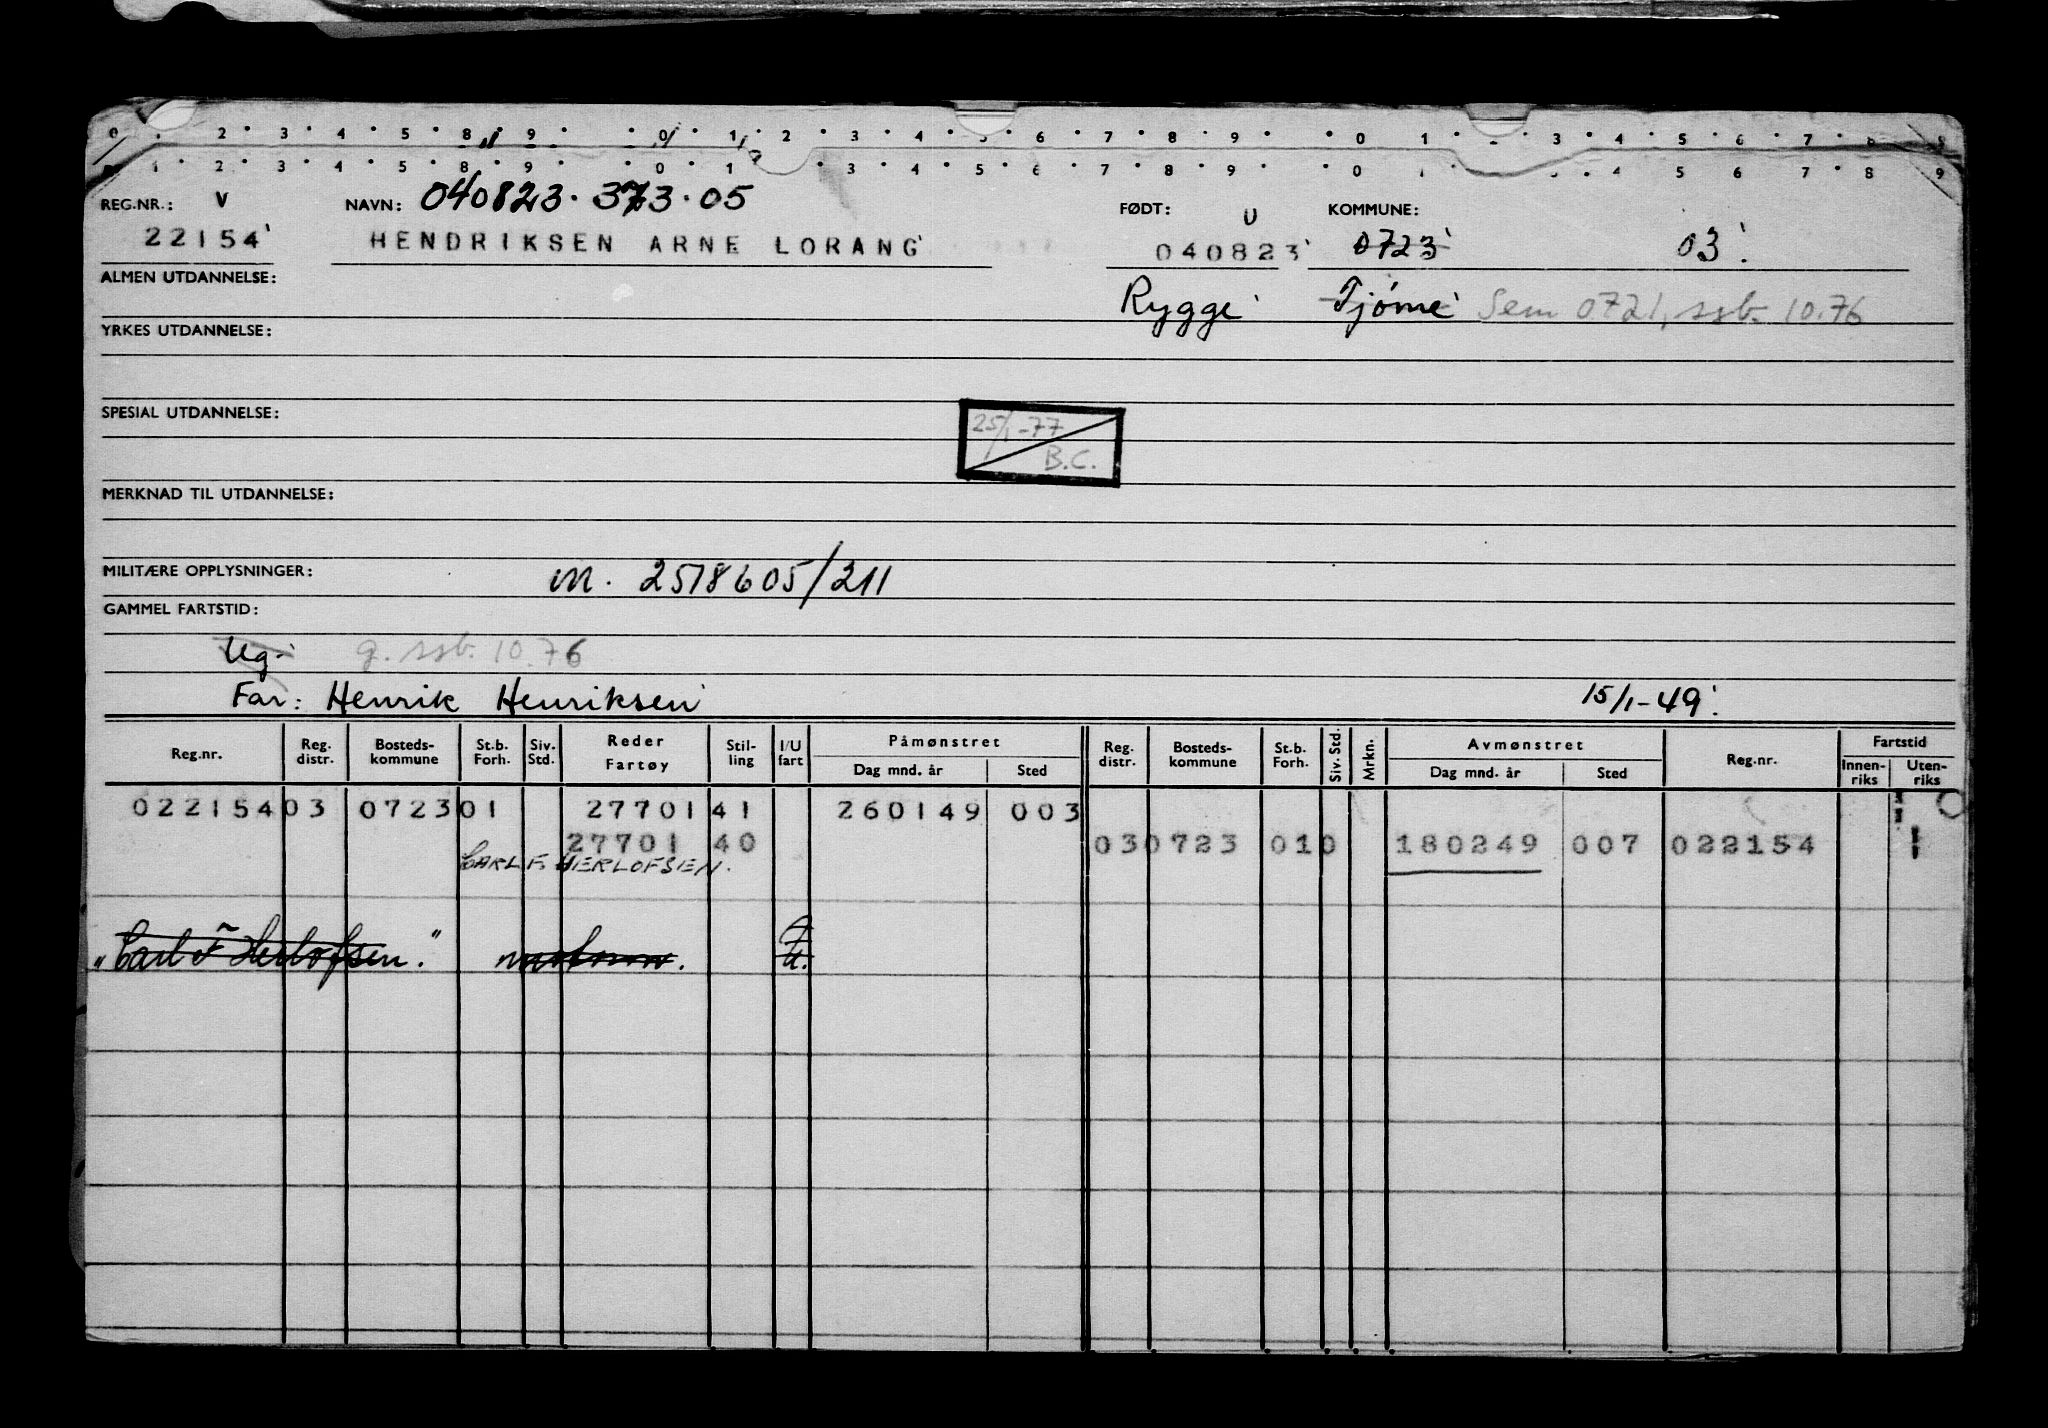 0 2 3 4 5 8 9 0 1 2 3 4 5 6 7 8 9 0 1 3 4 5 6 7 8 9
1 2 3 4 5 8 9 0 1 3 4 5 6 7 8 9 0 4 5 6 7 8 9
REG.NR.: V NAVN: 040823.373.05 FØDT: U KOMMUNE:
22154 HENDRIKSEN ARNE LORANG 040823 0723 03
ALMEN UTDANNELSE: Rygge Tjøme Sem 0721, ssb. 10.76
YRKES UTDANNELSE:
SPESIAL UTDANNELSE:
25/1-77
B.C.
MERKNAD TIL UTDANNELSE:
MILITÆRE OPPLYSNINGER: M. 2518605/211
GAMMEL FARTSTID:
Ug. g. ssb. 10.76
Far: Henrik Henriksen 15/1-49
Reg.nr. Reg. distr. Bosteds-kommune St.b. Forh. Siv. Std. Reder Fartøy Stil-ling I/U fart Påmønstret Dag mnd. år Sted Reg. distr. Bosteds-kommune St.b. Forh. Siv. Std. Mrkn. Avmønstret Dag mnd. år Sted Reg.nr. Fartstid Innen-riks Uten-riks
022154 03 0723 01 27701 41 260149 003
27701 40 03 0723 01 0 180249 007 022154 1
CARL F. HERLOFSEN.
"Carl F Herlofsen." u.